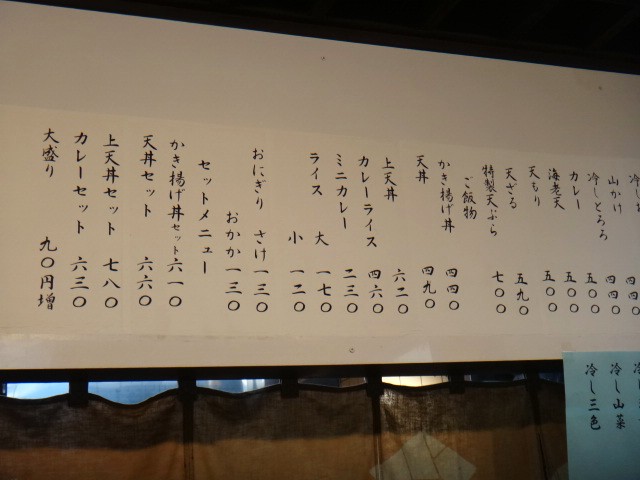 冷し
四四〇
山かけ
四四〇
冷しとろろ
五〇〇
カレー
五〇〇
海老天
五〇〇
天もり
天ざる
五九〇
特製天ぷら
七〇〇
ご飯物
かき揚げ丼
四四〇
天丼
四九〇
上天丼
六二〇
カレーライス
四六〇
ミニカレー
二三〇
ライス 大
一七〇
小
一二〇
おにぎり さけ
一三〇
おかか
一三〇
セットメニュー
かき揚げ丼セット
六一〇
天丼セット
六六〇
上天丼セット
七八〇
カレーセット
六三〇
大盛り
九〇円増
冷し山菜
冷し三色